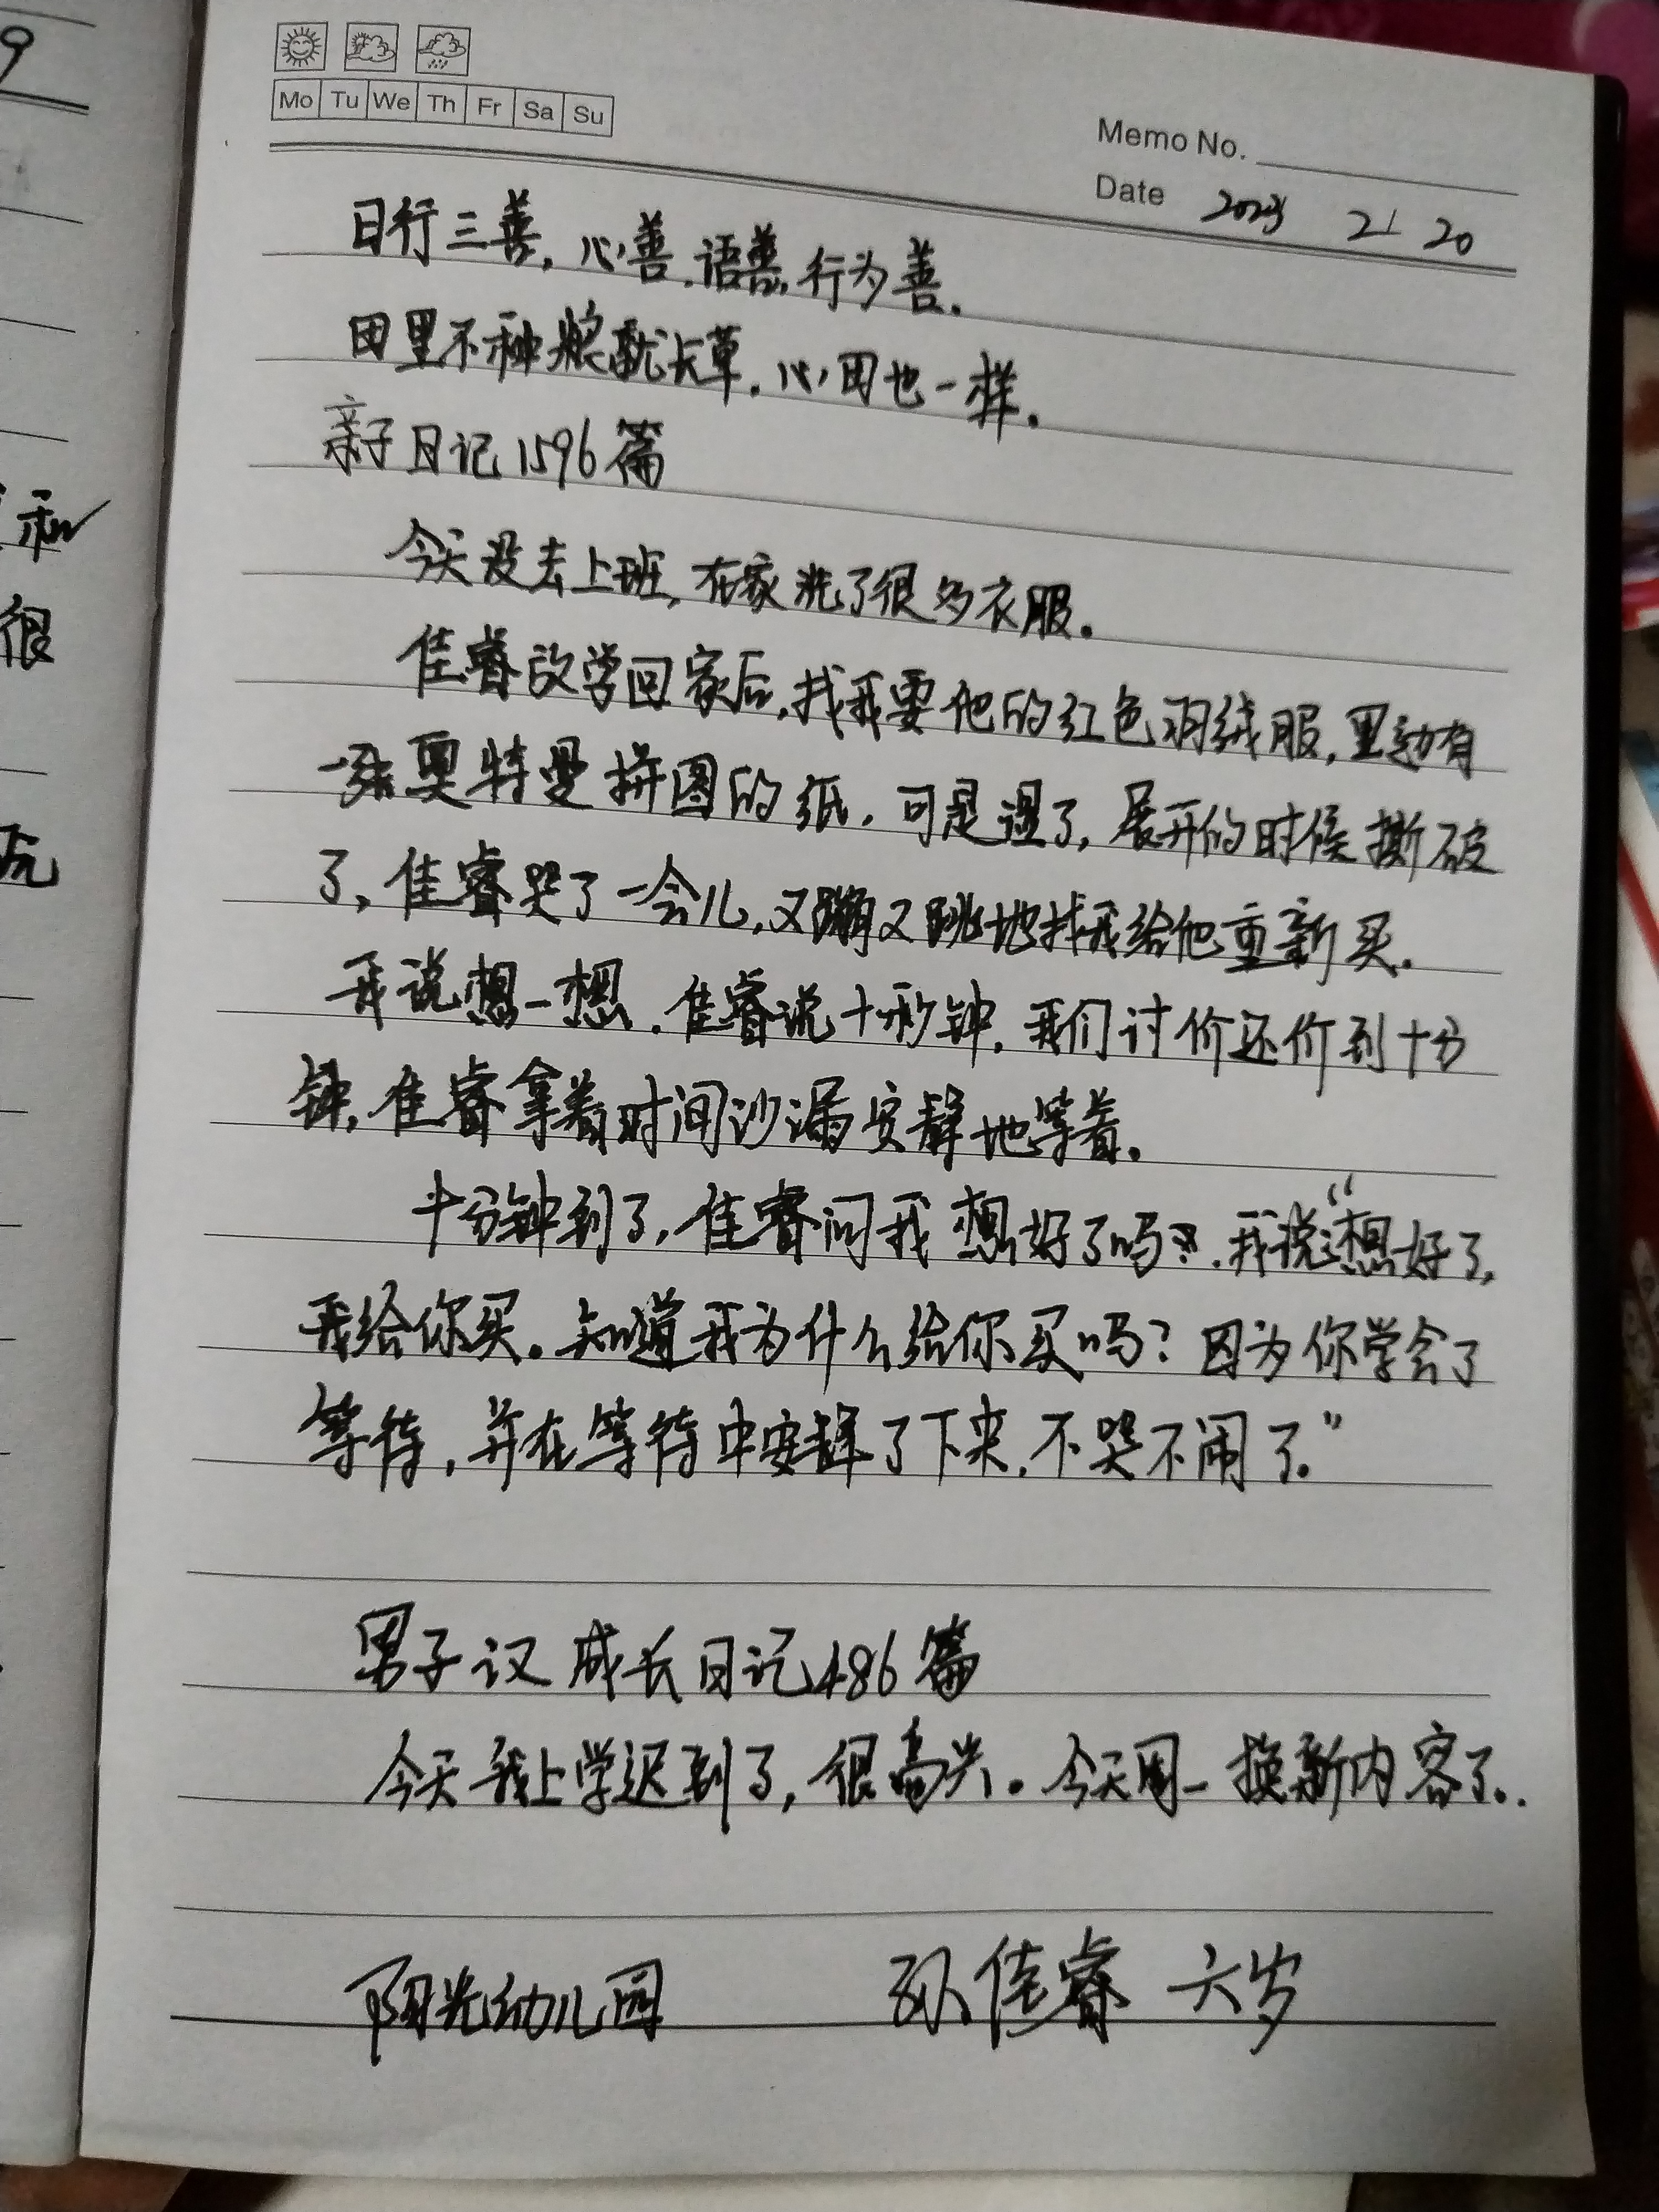 Mo Tu We Th Fr Sa Su
Memo No.
Date 2023 2 20
日行三善，心善.语善,行为善.
田里不种粮就长草.心田也一样.
亲子日记1596篇
今天没去上班,在家洗了很多衣服.
佳睿放学回家后,找我要他的红色羽绒服,里边有
一张奥特曼拼图的纸.可是湿了,展开的时候撕破
了,佳睿哭了一会儿,又蹦又跳地找我给他重新买.
我说想一想.佳睿说十秒钟,我们讨价还价到十分
钟,佳睿拿着时间沙漏安静地等着.
十分钟到了,佳睿问我想好了吗?.我说:“想好了,
我给你买。知道我为什么给你买吗?因为你学会了
等待,并在等待中安静了下来,不哭不闹了.”
男子汉成长日记486篇
今天我上学迟到了,很高兴。今天周一换新内容了..
阳光幼儿园 孙佳睿 六岁
9
和
很
玩